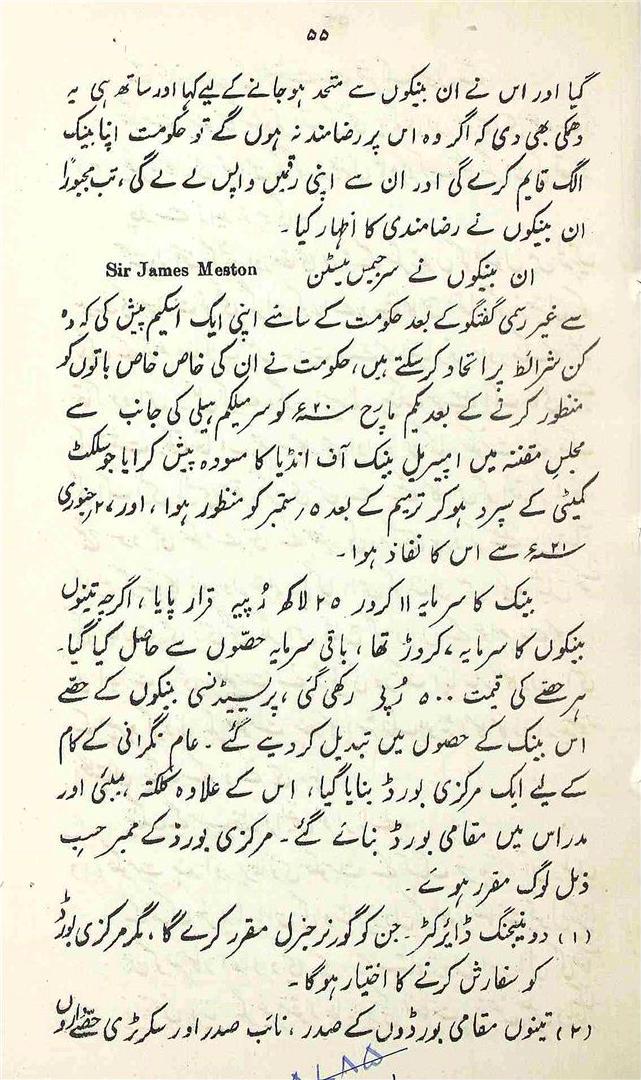 ۵۵
گیا اور اس نے ان بینکوں سے متحد ہوجانے کے لیے کہا اور ساتھ ہی یہ
دھمکی بھی دی کہ اگر وہ اس پر رضامند نہ ہوں گے تو حکومت اپنا بینک
الگ قایم کرے گی اور ان سے اپنی رقمیں واپس لے لے گی، تب مجبوراً
ان بینکوں نے رضامندی کا اظہار کیا۔
ان بینکوں نے سر جیمس میسٹن Sir James Meston
سے غیر رسمی گفتگو کے بعد حکومت کے سامنے اپنی ایک اسکیم پیش کی کہ وہ
کن شرائط پر اتحاد کرسکتے ہیں، حکومت نے ان کی خاص خاص باتوں کو
منظور کرنے کے بعد یکم مارچ ۲۰ء کو سر میلکم ہیلی کی جانب سے
مجلس مقننہ میں امپیریل بینک آف انڈیا کا مسودہ پیش کرایا جو سلکٹ
کمیٹی کے سپرد ہوکر ترمیم کے بعد ۵ ستمبر کو منظور ہوا، اور ۲۷ جنوری
۲۱ء سے اس کا نفاذ ہوا۔
بینک کا سرمایہ ۱۱ کرور ۲۵ لاکھ رُپیہ قرار پایا، اگرچہ تینوں
بینکوں کا سرمایہ ۷ کروڑ تھا، باقی سرمایہ حصّوں سے حاصل کیا گیا۔
ہر حصّے کی قیمت ۵۰۰ رُپی رکھی گئی، پریسیڈنسی بینکوں کے حصّے
اس بینک کے حصوں میں تبدیل کر دیے گئے۔ عام نگرانی کے کام
کے لیے ایک مرکزی بورڈ بنایا گیا، اس کے علاوہ کلکتہ، بمبئی اور
مدراس میں مقامی بورڈ بنائے گئے۔ مرکزی بورڈ کے ممبر حسب
ذیل لوگ مقرر ہوئے۔
(۱) دو منیجنگ ڈایرکٹر۔ جن کو گورنر جنرل مقرر کرے گا، مگر مرکزی بورڈ
کو سفارش کرنے کا اختیار ہوگا۔
(۲) تینوں مقامی بورڈوں کے صدر، نائب صدر اور سکرٹری حصّے داروں